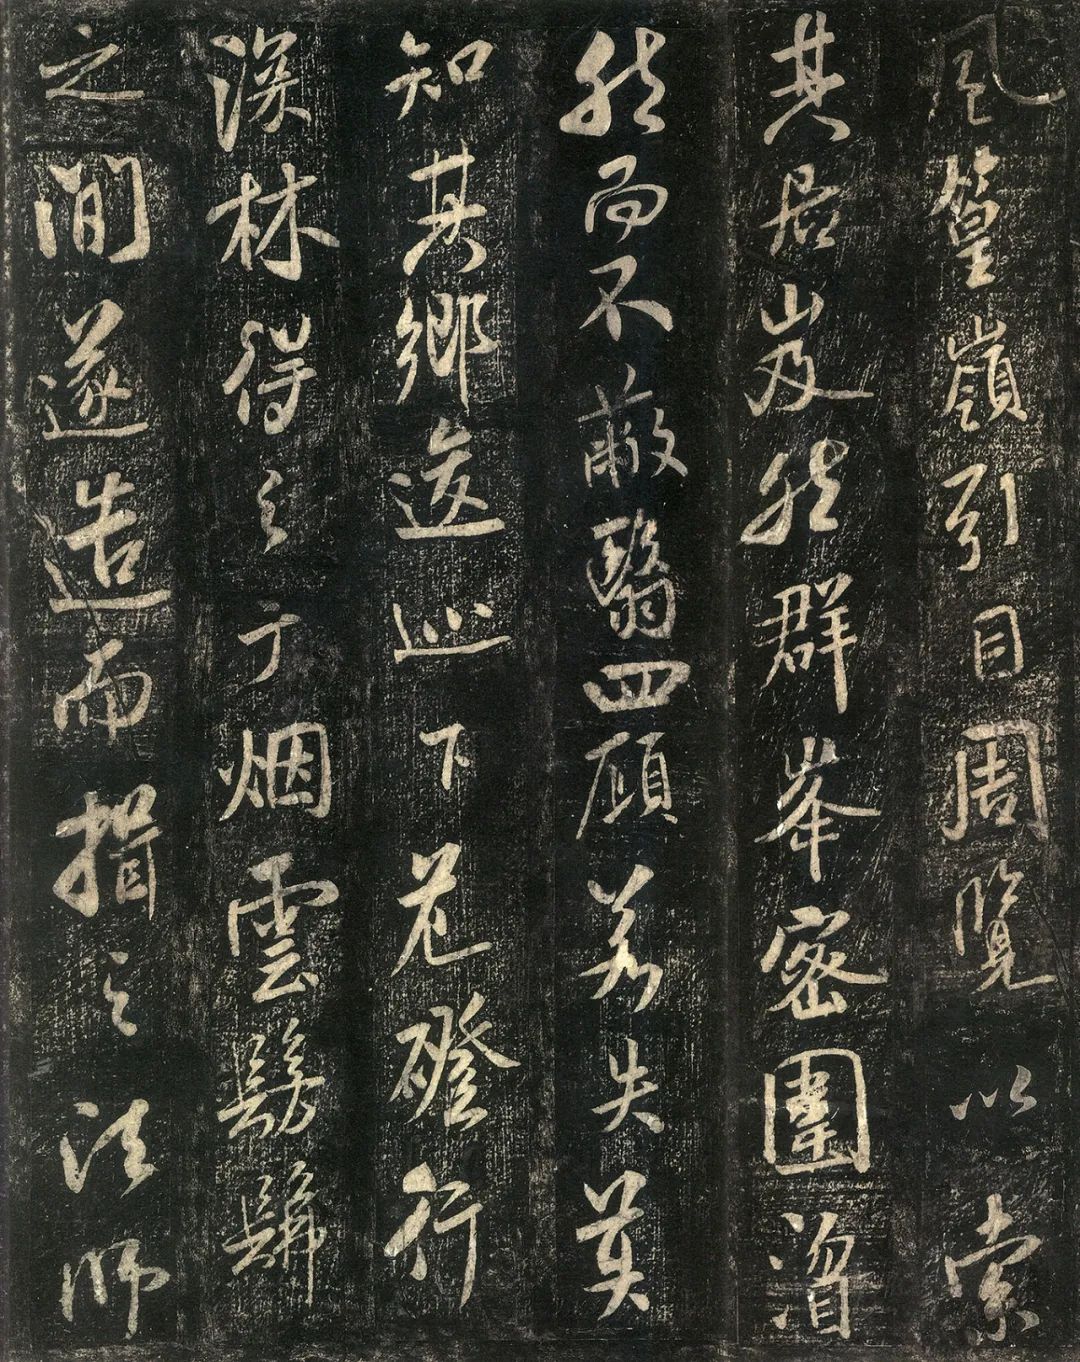 風篁嶺引目周覽以索
其居岌然群峯密圍濳
然而不蔽翳四顧若失莫
知其鄉逡巡下危磴行
深林得之於烟雲髣髴
之間遂造而揖之法師